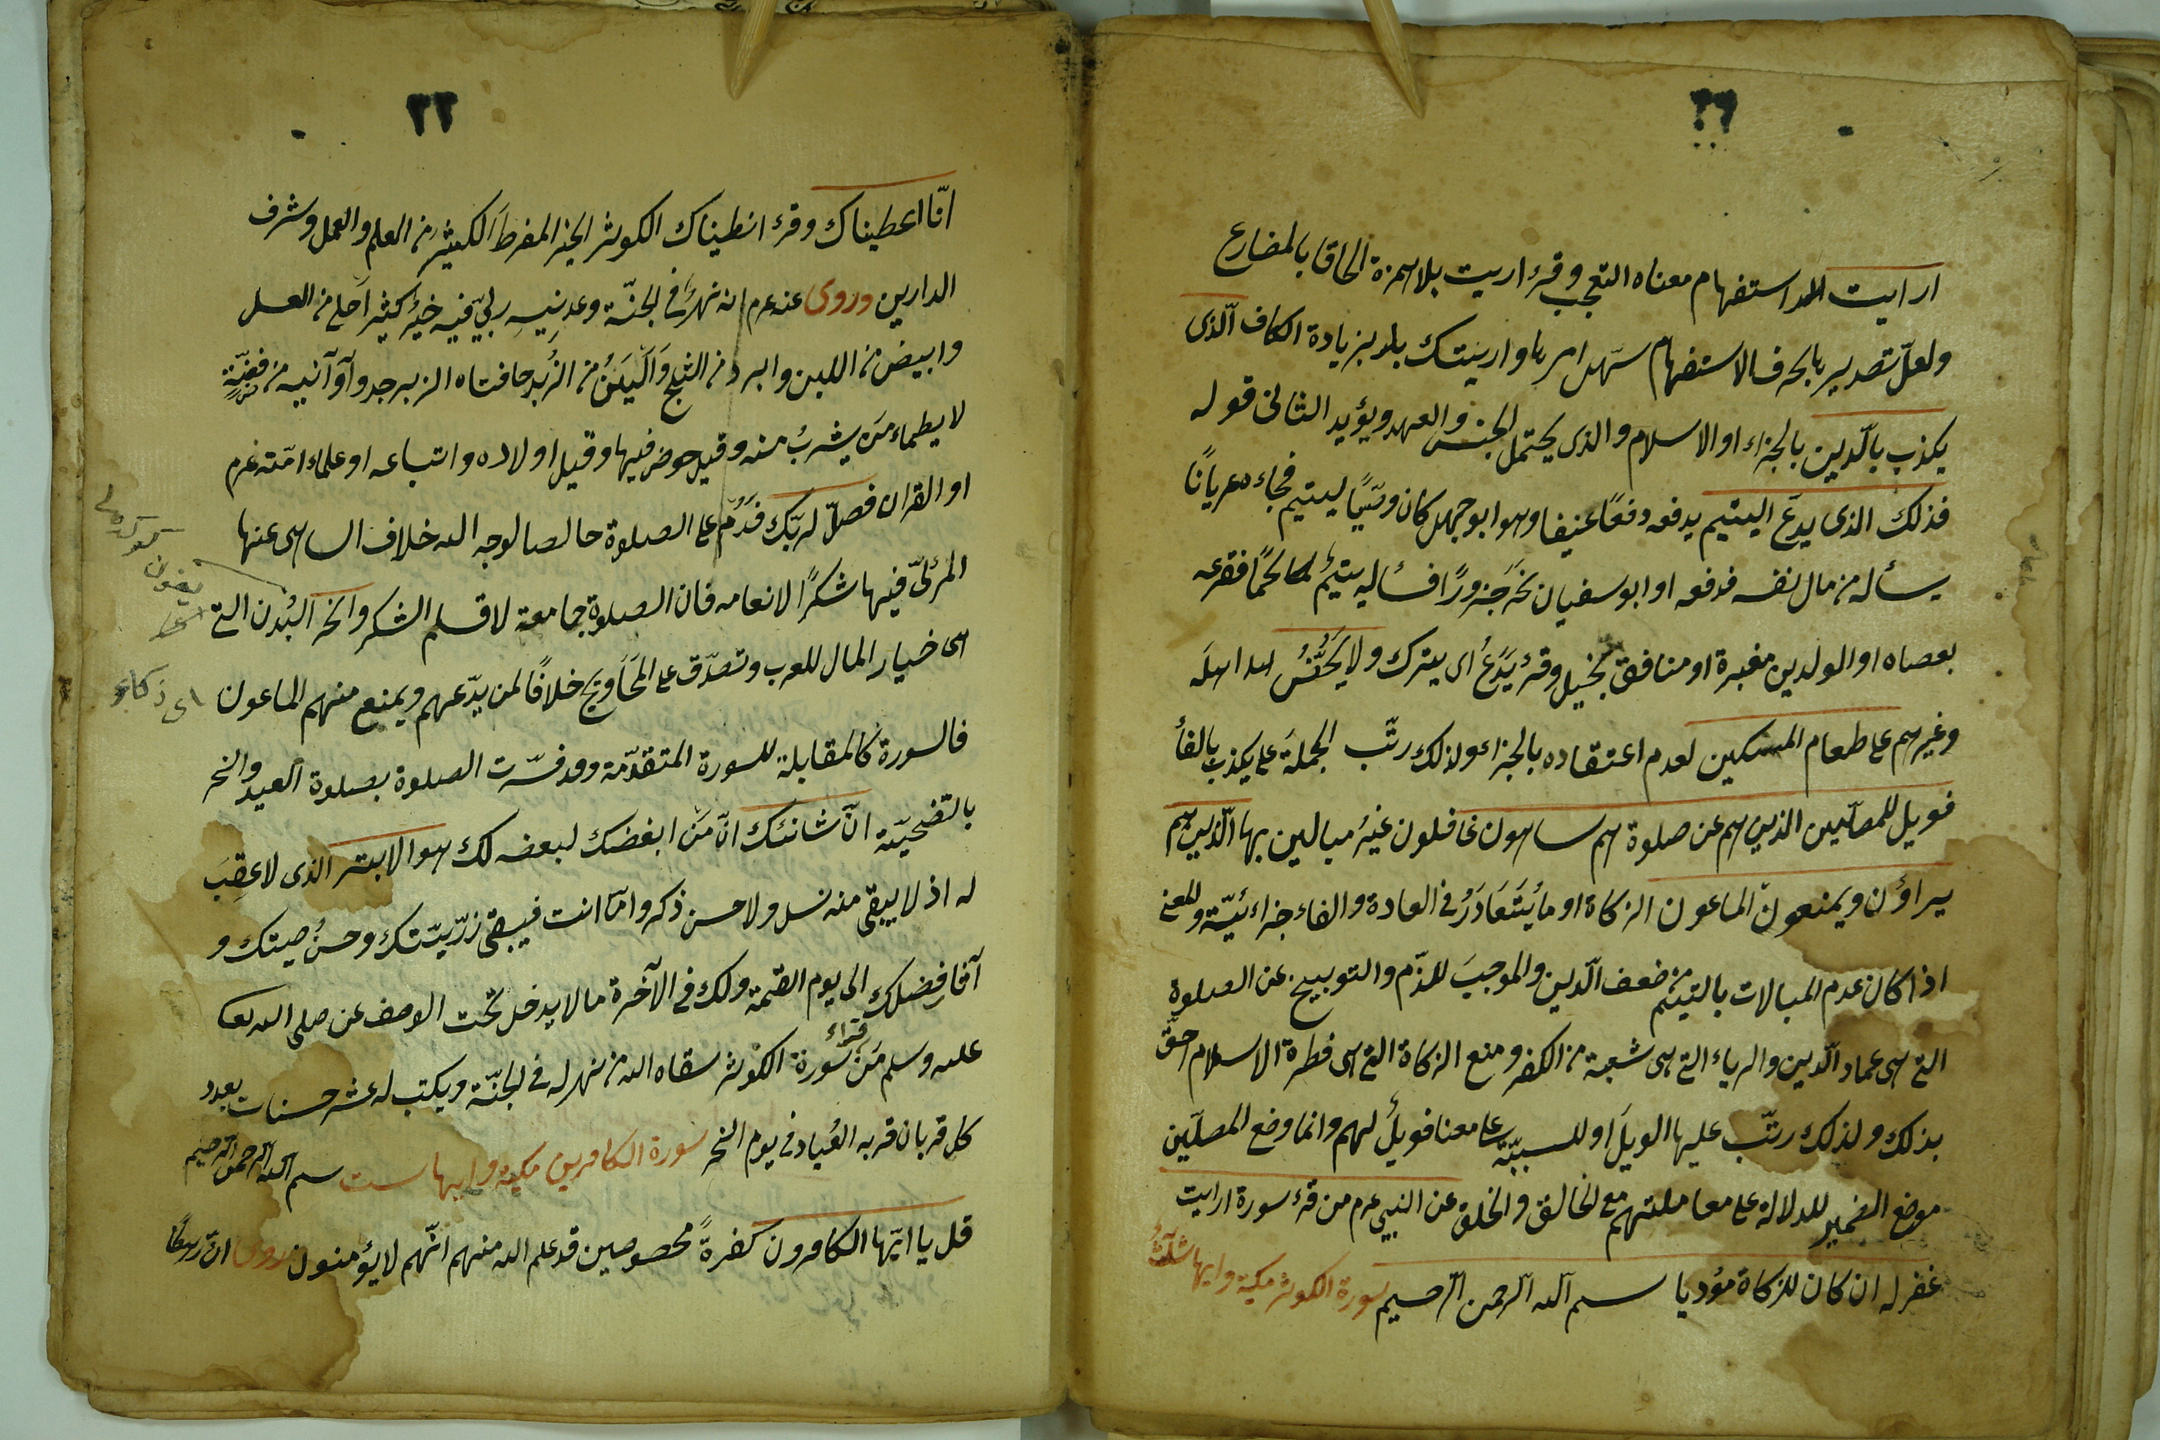 ارايت استفهام معناه التعجب وقرء اريت بلا همزة الحاقا بالمضارع
ولعلّ تصديره بالحرف الاستفهام سهل امرها واريتك بزيادة الكاف الّذى
يكذب بالّدين بالجزاء او الاسلام والذى يحتمل الجنس والعهد ويؤيد الثانى قوله
فذلك الذى يدعّ اليتيم يدفعه دفعًا عنيفا وهو ابو جهل كان وصيًا ليتيم فجاءه عريانًا
يسأله من مال نفسه فدفعه او ابو سفيان نحر جزورًا فسأله يتيمٌ لحمًا فقرعه
بعصاه او الوليد بن مغيرة او منافق بخيل وقرئ يَدَعُ اى يترك ولا يَحُضُّ اهله
وغيرهم على طعام المسكين لعدم اعتقاده بالجزاء ولذلك رتّب الجملة على يكذب بالفأ
فويل للمصلّين الذين هم عن صلوة هم ساهون غافلون غيرُ مبالين بها الّذين هم
يراؤن ويمنعون الماعون الزكاة او ما يُتَعَاوَرُ فى العادة والفاء جزاءئيّة والمعنى
اذا كان عدم المبالات باليتيم من ضعف الّدين والموجبَ للذّم والتوبيخ عن الصلوة
التى هى عماد الّدين والرياء التى هى شعبة من الكفر ومنع الزكاة التى هى فطرة الاسلام احقّ
بذلك ولذلك رتّب عليها الويلَ او للسببيّة على معنا فويلٌ لهم وانما وضع المصلّين
موضع الضمير للدلالة على معاملتهم مع الخالق والخلق عن النبى عم من قرء سورة ارايت
غفر له ان كان للزكاة مؤديا سورة الكوثر مكية وايها ثلثٌ بسم الله الرحمن الرحيم
٢٢
انّا اعطيناك وقرء انطيناك الكوثر الخير المفرط الكثير من العلم والعمل وشرف
الدارين وروى عنه عم انه نهرٌ فى الجنّة وعدنيهِ ربّى فيه خيرٌ كثير احلى من العسل
وابيض من اللبن وابرد من الثلج وَاَليَنُ من الزُبد حافتاه الزبرجد وآوآنيه من فضّةٍ
لا يظماء مَن يشربُ منه وقيل حوض فيها وقيل اولاده واتباعه او علماء امّته عم
او القران فصلّ لربّك فَدُمْ على الصلوة خالصا لوجه الله خلاف الساهى عنها
المرئىّ فيها شكرًا لانعامه فان الصلوة جامعة لاقسام الشكر وانحر البُدن التى
هى خيار المال للعرب وتصدّق على المَحَاويج خلافًا لمن يدّعهم ويمنع منهم الماعون
اى زكاة
فالسورة كالمقابلة للسورة المتقدّمة وقد فسّرت الصلوة بصلوة العيد والنحر
بالتّضحيّة انّ شانئك انّ مَن ابغضك لبغضه لك هو الابتر الذى لا عقِبَ
له اذ لا يبقى منه نسل ولا حسن ذكر وامّا انت فيبقى ذرّيتّك وحسنُ صيتك و
آفار فضلك الى يوم القيمة ولك فى الآخرة ما لا يدخل تحت الوصف عن صلى الله تعا
عليه وسلم مَن قراء سورة الكوثر سقاه الله من نهر له فى الجنّة ويكتب له عشر حسنات بعدد
كل قربان قربه العُباد فى يوم النحر سورة الكافرين مكية وايها ست بسم الله الرحمن الرحيم
قل يا ايّها الكافرون كفرةً مخصوصين قد علم الله منهم انّهم لا يؤمنون روى انّ رهطًا